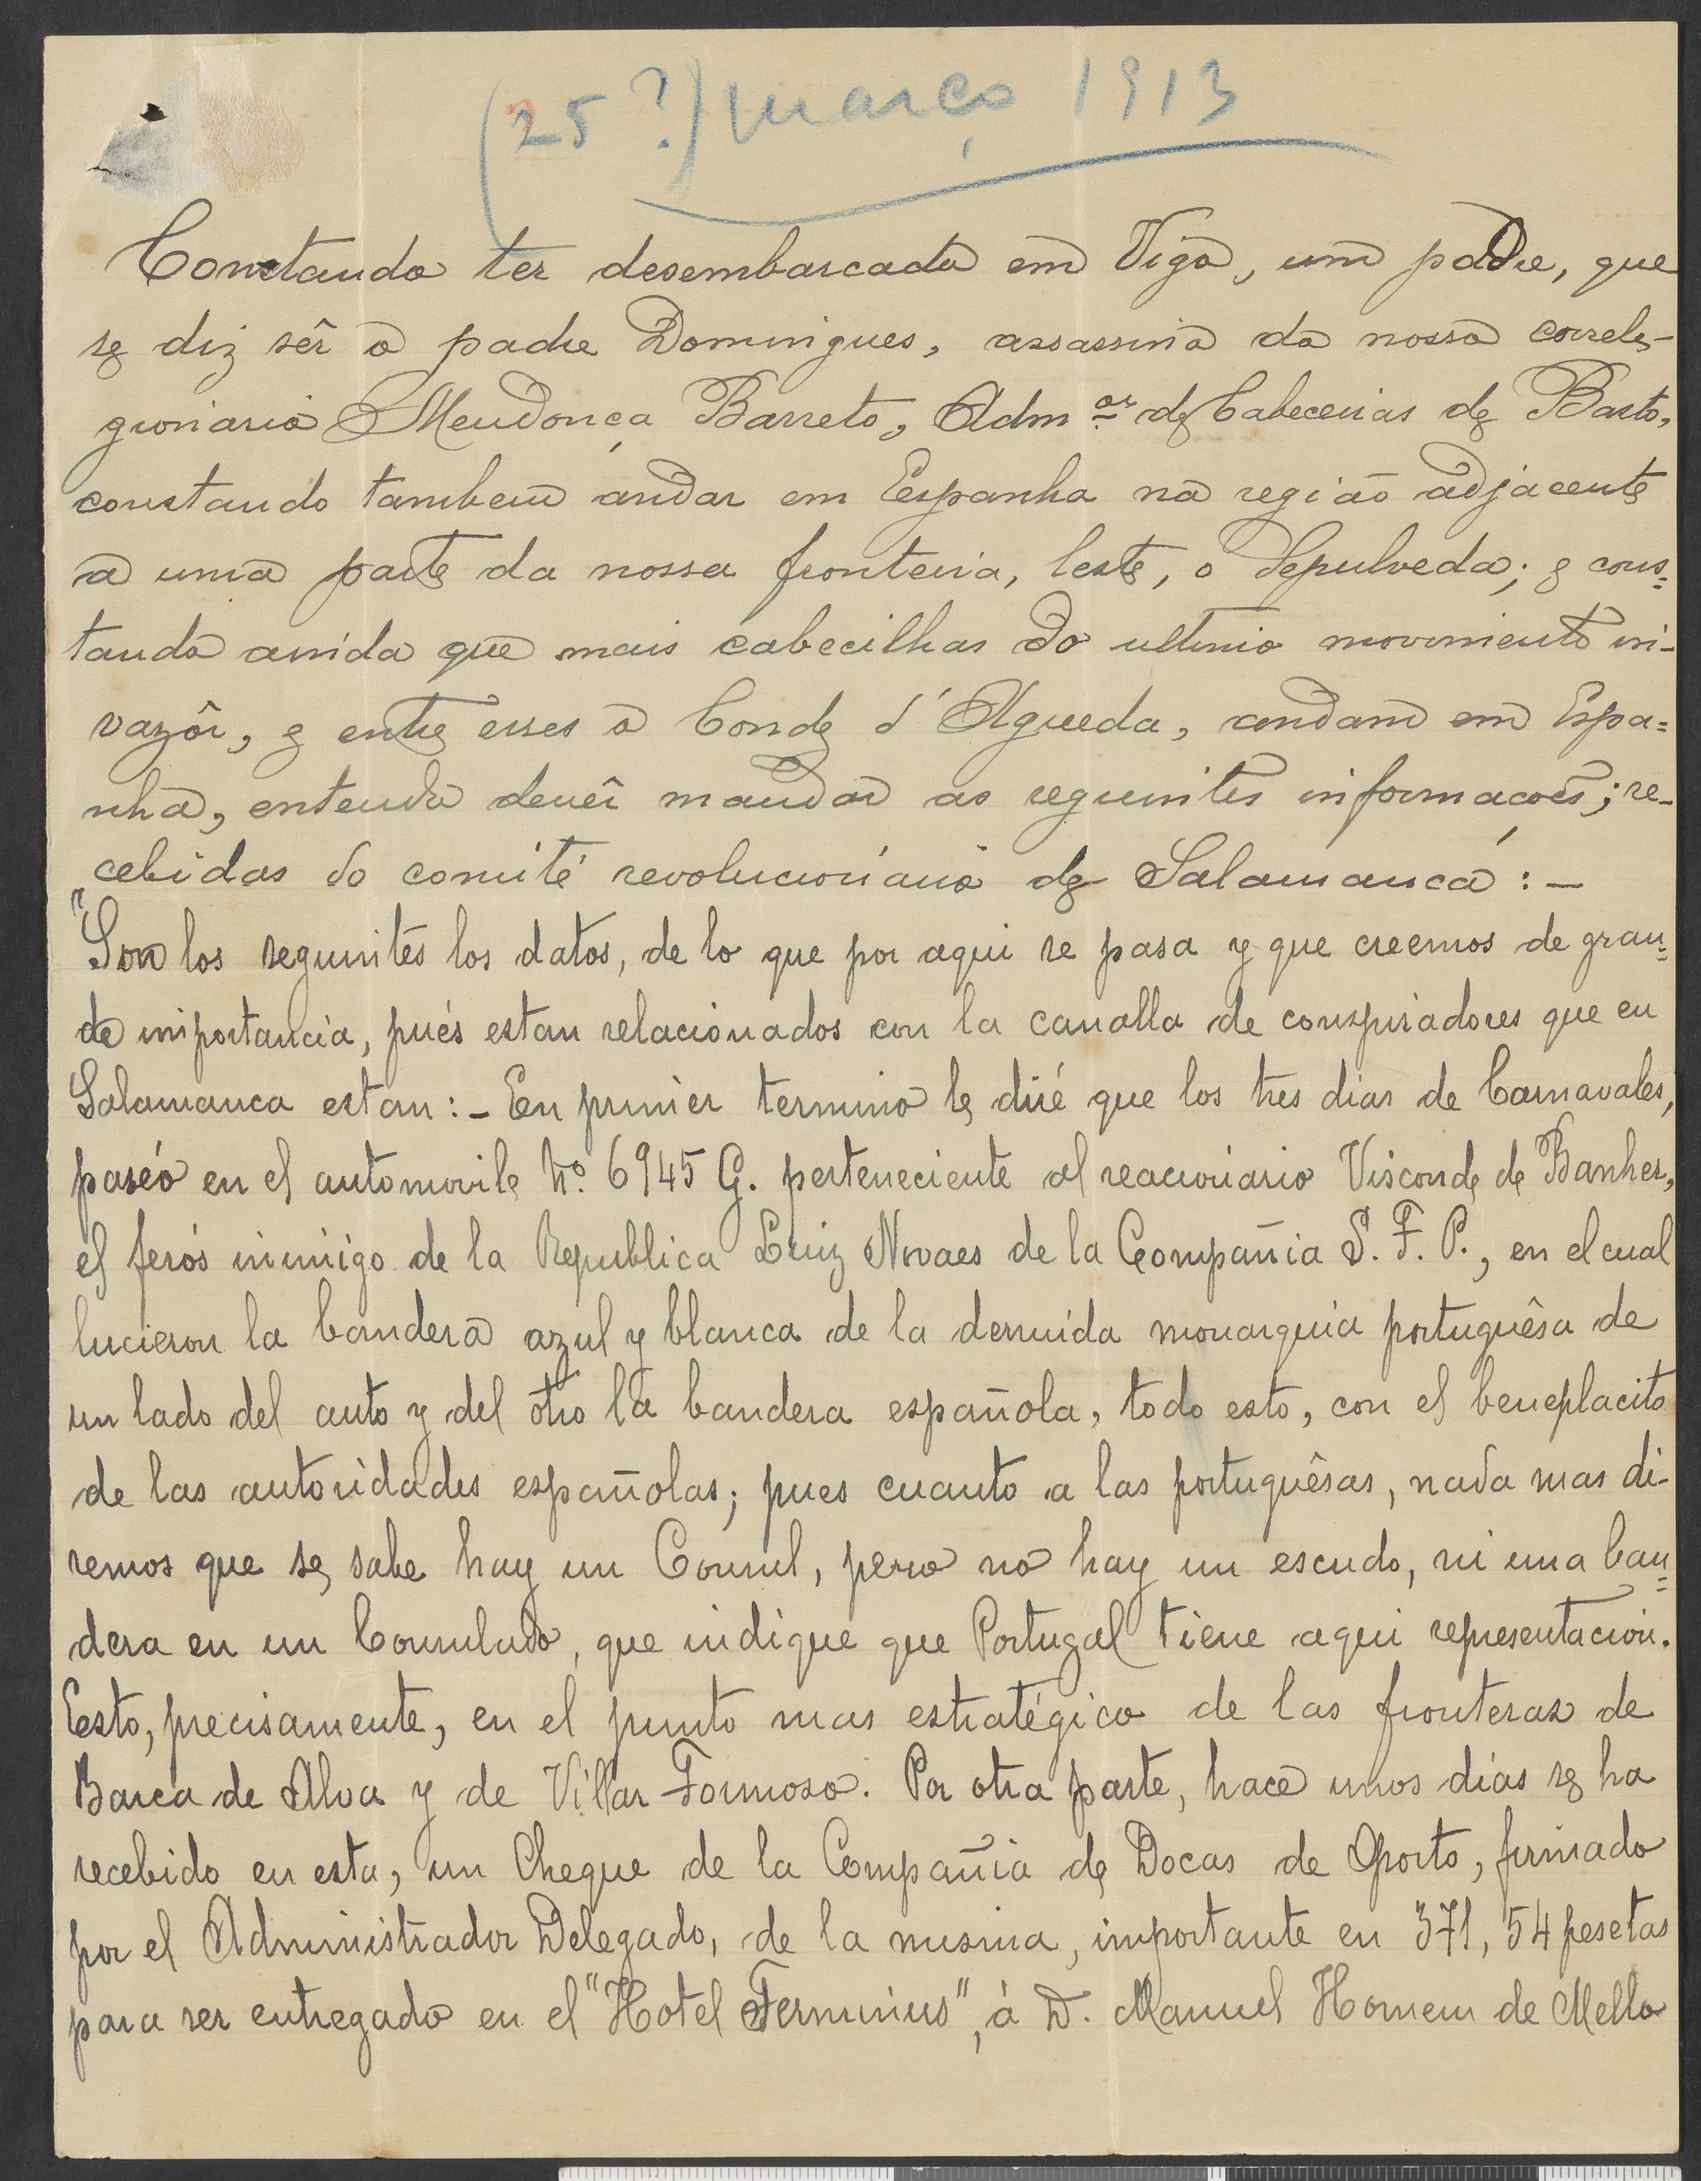 (25?) março 1913
Constando ter desembarcado em Vigo, um padre, que
se diz sêr o padre Domingues, assassino do nosso correli-
gionario Mendonça Barreto, Adm.or de Cabeceiras de Basto,
constando tambem andar em Espanha na região adjacente
a uma parte da nossa fronteira, leste, o Sepulveda; e cons=
tando ainda que mais cabecilhas do ultimo movimento in-
vazôr, e entre esses o Conde d'Agueda, andam em Espa=
nha, entendo devêr mandar as seguintes informações; re-
cebidas do comité revolucionario de Salamanca: —
"Son los seguintes los datos, de lo que por aqui se pasa y que creemos de gran=
de importancia, pués estan relacionados con la canalla de conspiradores que en
Salamanca estan: - En primer termino le diré que los tres dias de Carnavales,
paseó en el automovile No. 6945 G. perteneciente al reacionario Visconde de Banhes,
el ferós inimigo de la Republica Luiz Novaes de la Compañia S. F. P., en el cual
lucieron la bandera azul y blanca de la derruida monarquia portuguêsa de
un lado del auto y del otro la bandera española, todo esto, con el beneplacito
de las autoridades españolas; pues cuanto a las portuguêsas, nada mas di-
remos que se sabe hay un Consul, pero no hay un escudo, ni una ban=
dera en un Consulado, que indique que Portugal tiene aqui representacion.
Esto, precisamente, en el punto mas estratégico de las fronteras de
Barca de Alva y de Villar Formoso. Por otra parte, hace unos dias se ha
recebido en esta, un Cheque de la Compañia de Docas de Oporto, firmado
por el Administrador Delegado, de la misma, importante en 371,54 pesetas
para ser entregado en el "Hotel Terminus", á D. Manuel Homem de Mello